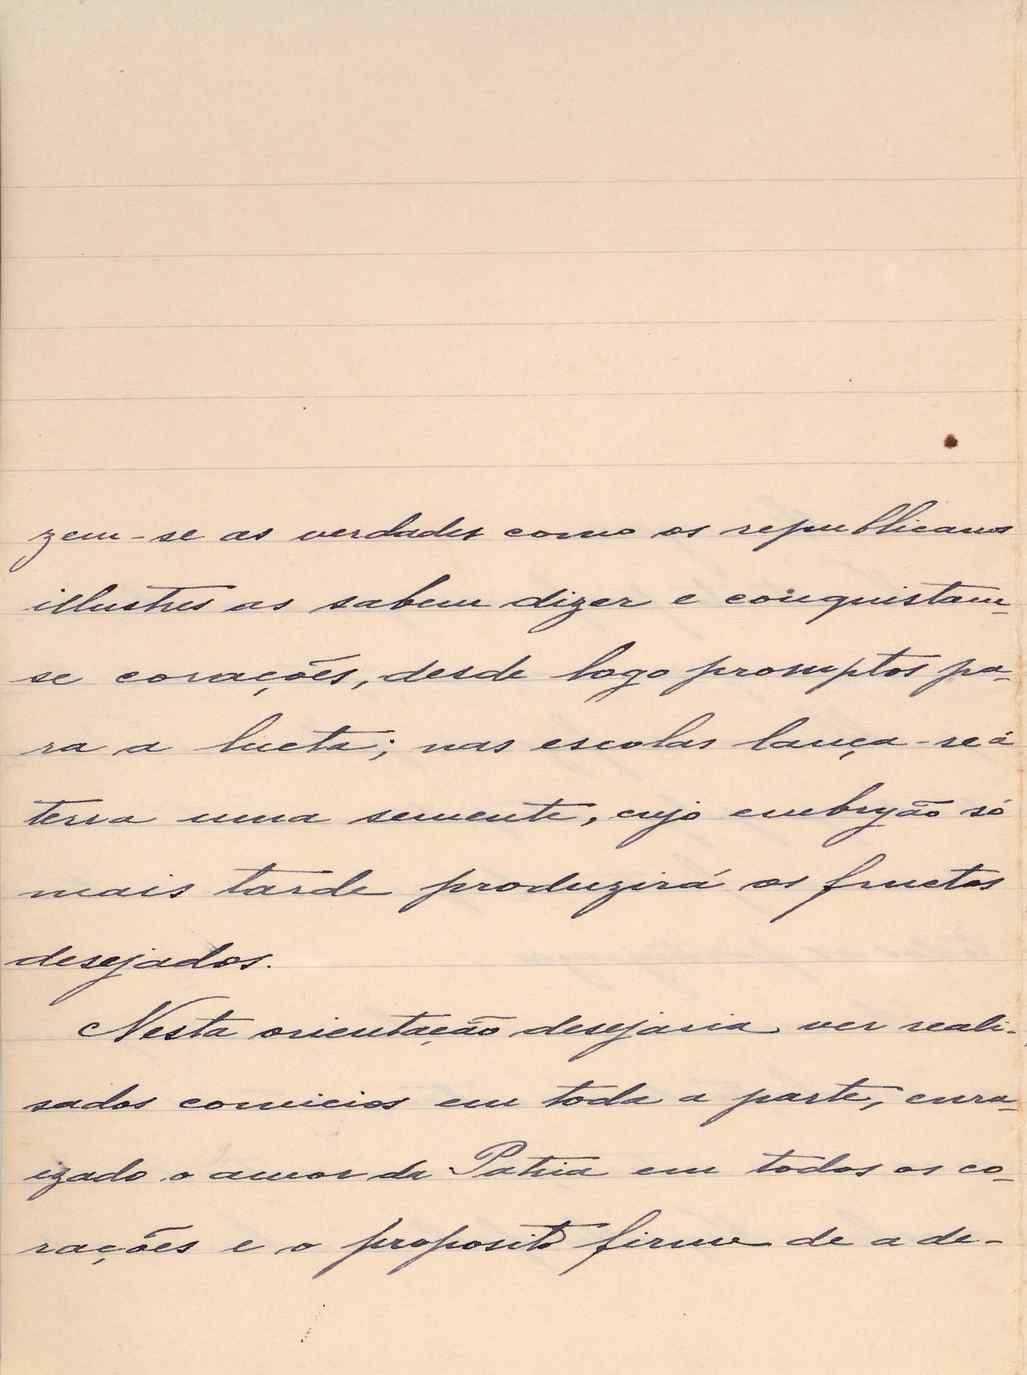 zem-se as verdades como os republicanos
illustres as sabem dizer e conquistam-
se corações, desde logo promptos pa-
ra a lucta; nas escolas lança-se á
terra uma semente, cujo embryão só
mais tarde produzirá os fructos
desejados.
Nesta orientação desejaria ver reali-
sados comicios em toda a parte, enra-
izado o amor da Patria em todos os co-
rações e o proposito firme de a de-